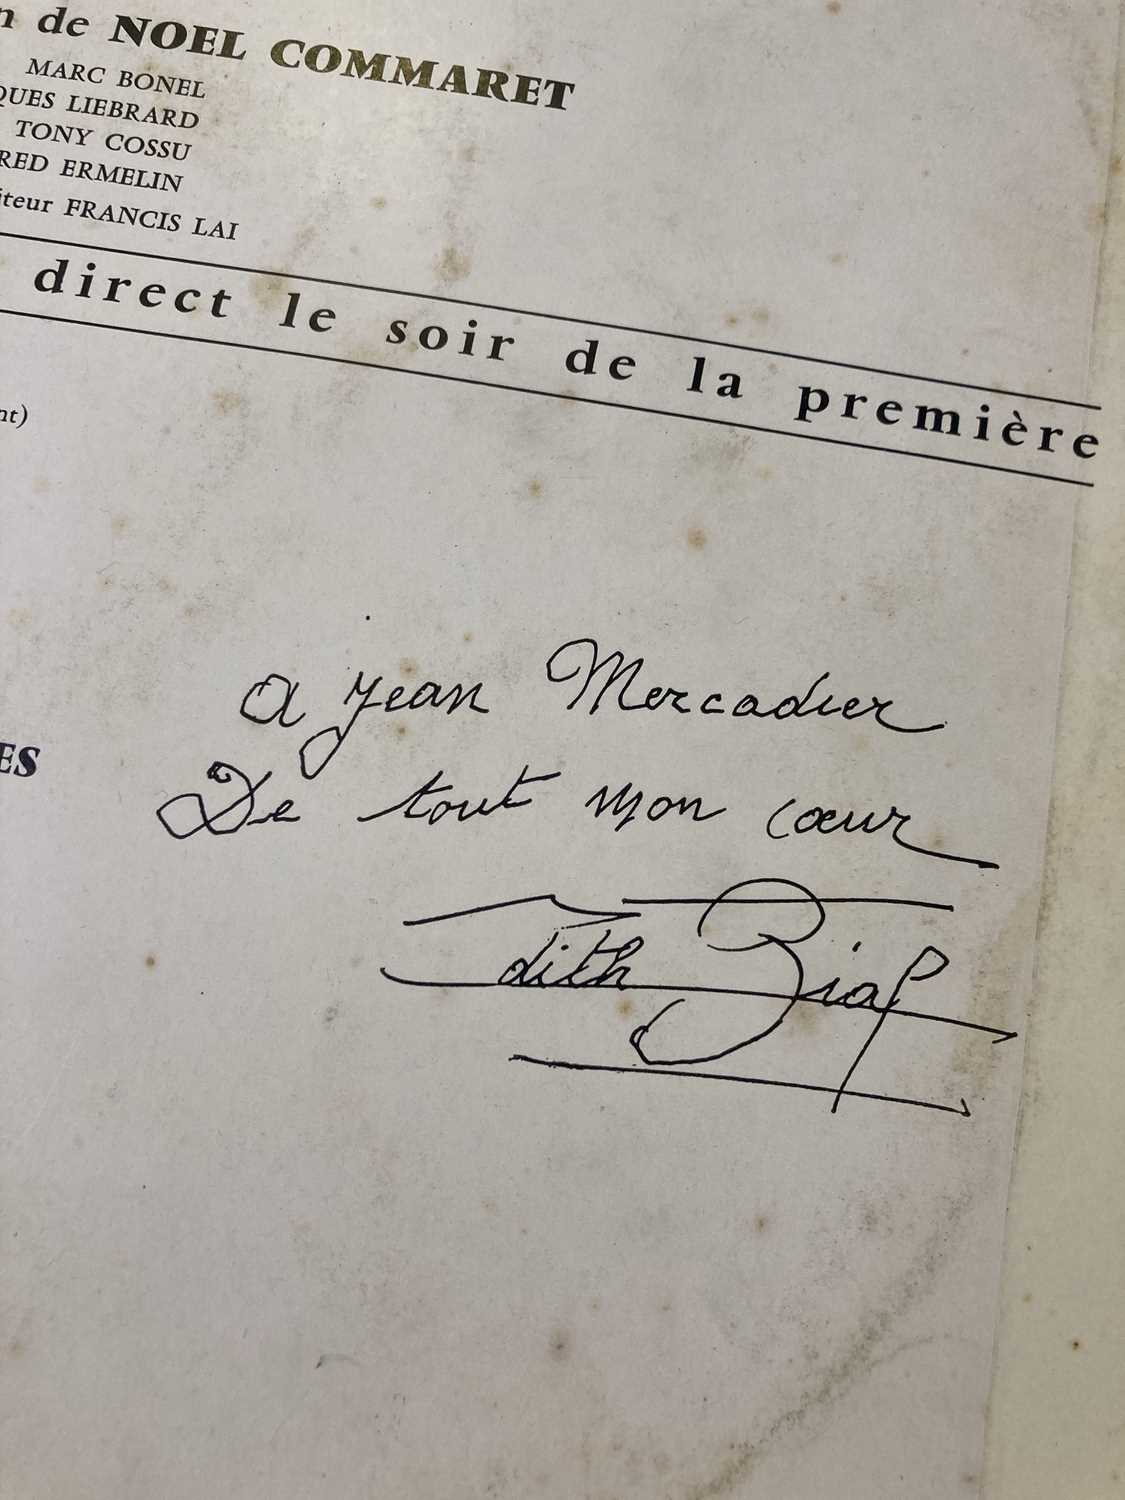 n de NOEL COMMARET
MARC BONEL
QUES LIEBRARD
TONY COSSU
RED ERMELIN
iteur FRANCIS LAI
direct le soir de la première
nt)
ES
a Jean Mercadier
De tout mon cœur
Edith Piaf